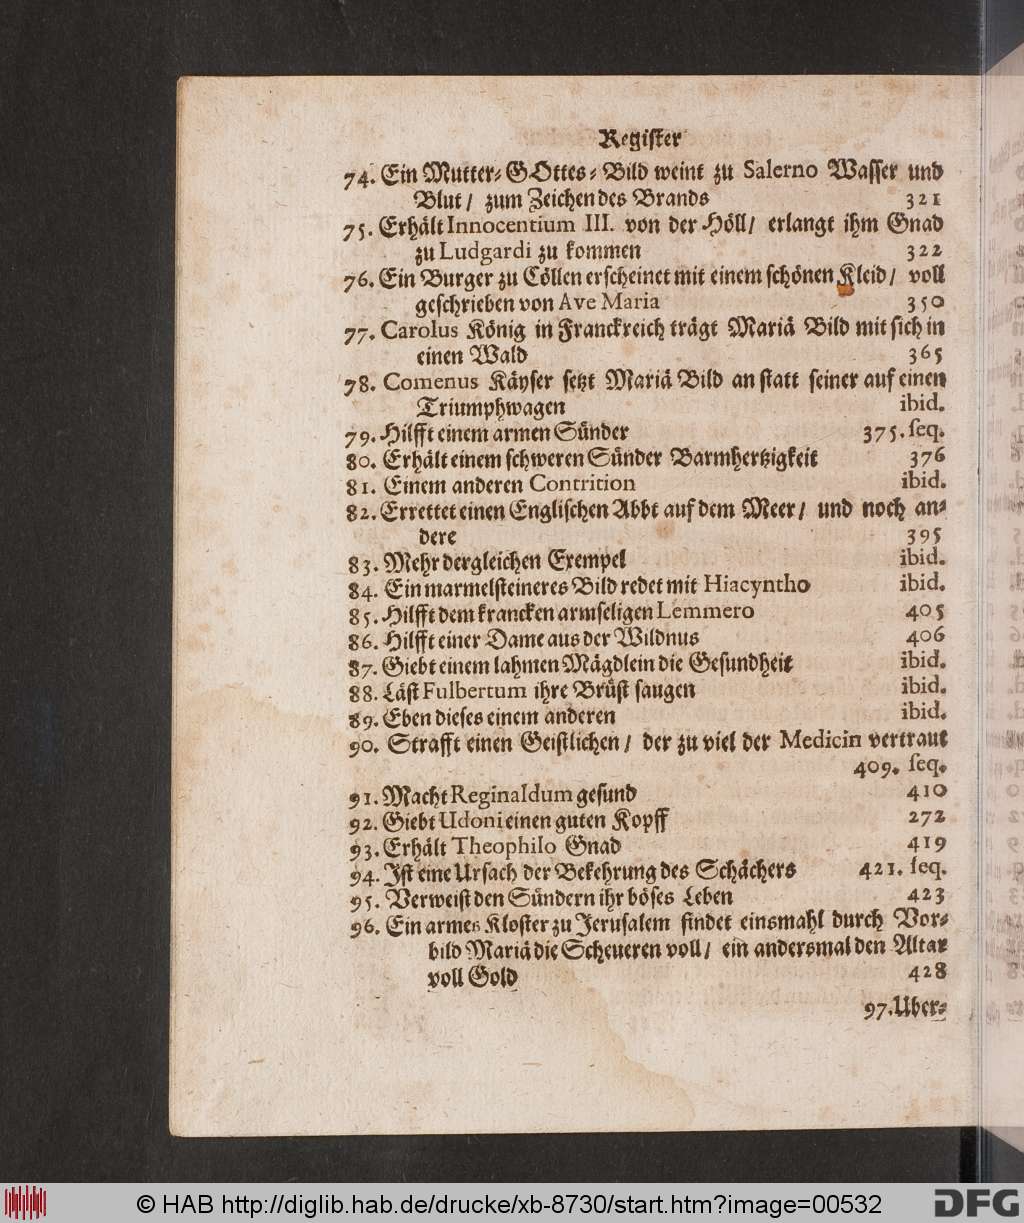 Register
74. Ein Mutter-GOttes-Bild weint zu Salerno Wasser und
Blut / zum Zeichen des Brands 321
75. Erhält Innocentium III. von der Höll / erlangt ihm Gnad
zu Ludgardi zu kommen 322
76. Ein Burger zu Cöllen erscheinet mit einem schönen Kleid / voll
geschrieben von Ave Maria 350
77. Carolus König in Franckreich trägt Mariä Bild mit sich in
einen Wald 365
78. Comenus Käyser setzt Mariä Bild an statt seiner auf einen
Triumphwagen ibid.
79. Hilfft einem armen Sünder 375. seq.
80. Erhält einem schweren Sünder Barmhertzigkeit 376
81. Einem anderen Contrition ibid.
82. Errettet einen Englischen Abbt auf dem Meer / und noch an-
dere 395
83. Mehr dergleichen Exempel ibid.
84. Ein marmelsteineres Bild redet mit Hiacyntho ibid.
85. Hilfft dem krancken armseligen Lemmero 405
86. Hilfft einer Dame aus der Wildnus 406
87. Giebt einem lahmen Mägdlein die Gesundheit ibid.
88. Läst Fulbertum ihre Brüst saugen ibid.
89. Eben dieses einem anderen ibid.
90. Strafft einen Geistlichen / der zu viel der Medicin vertraut
409. seq.
91. Macht Reginaldum gesund 410
92. Giebt Udoni einen guten Kopff 272
93. Erhält Theophilo Gnad 419
94. Ist eine Ursach der Bekehrung des Schächers 421. seq.
95. Verweist den Sündern ihr böses Leben 423
96. Ein armes Kloster zu Jerusalem findet einsmahl durch Vor-
bild Mariä die Scheueren voll / ein andersmal den Altar
voll Gold 428
97. Uber-
© HAB http://diglib.hab.de/drucke/xb-8730/start.htm?image=00532
DFG